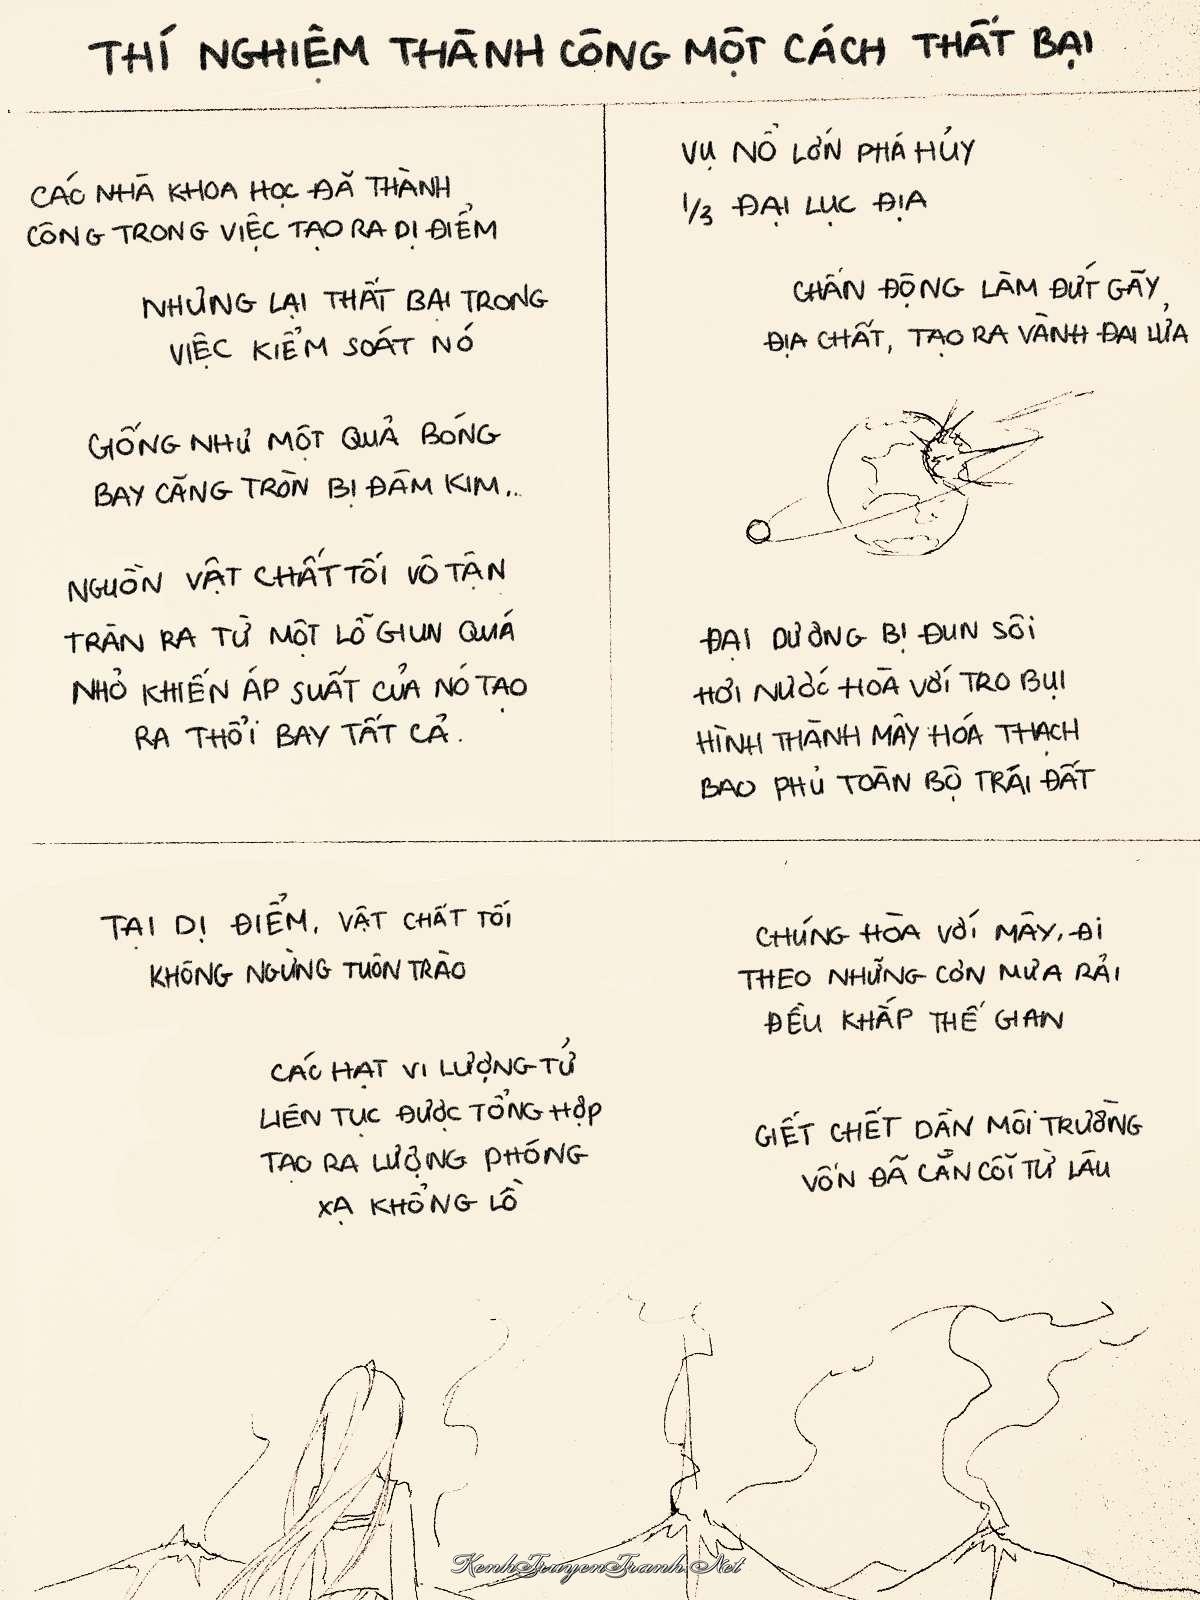 THÍ NGHIỆM THÀNH CÔNG MỘT CÁCH THẤT BẠI
CÁC NHÀ KHOA HỌC ĐÃ THÀNH
CÔNG TRONG VIỆC TẠO RA DỊ ĐIỂM
NHƯNG LẠI THẤT BẠI TRONG
VIỆC KIỂM SOÁT NÓ
GIỐNG NHƯ MỘT QUẢ BÓNG
BAY CĂNG TRÒN BỊ ĐÂM KIM...
NGUỒN VẬT CHẤT TỐI VÔ TẬN
TRÀN RA TỪ MỘT LỖ GIUN QUÁ
NHỎ KHIẾN ÁP SUẤT CỦA NÓ TẠO
RA THỔI BAY TẤT CẢ.
VỤ NỔ LỚN PHÁ HỦY
1/3 ĐẠI LỤC ĐỊA
CHẤN ĐỘNG LÀM ĐỨT GÃY
ĐỊA CHẤT, TẠO RA VÀNH ĐAI LỬA
ĐẠI DƯƠNG BỊ ĐUN SÔI
HƠI NƯỚC HÒA VỚI TRO BỤI
HÌNH THÀNH MÂY HÓA THẠCH
BAO PHỦ TOÀN BỘ TRÁI ĐẤT
TẠI DỊ ĐIỂM, VẬT CHẤT TỐI
KHÔNG NGỪNG TUÔN TRÀO
CÁC HẠT VI LƯỢNG TỬ
LIÊN TỤC ĐƯỢC TỔNG HỢP
TẠO RA LƯỢNG PHÓNG
XẠ KHỔNG LỒ
CHÚNG HÒA VỚI MÂY, ĐI
THEO NHỮNG CƠN MƯA RẢI
ĐỀU KHẮP THẾ GIAN
GIẾT CHẾT DẦN MÔI TRƯỜNG
VỐN ĐÃ CẰN CỖI TỪ LÂU
KenhTruyenTranh.Net